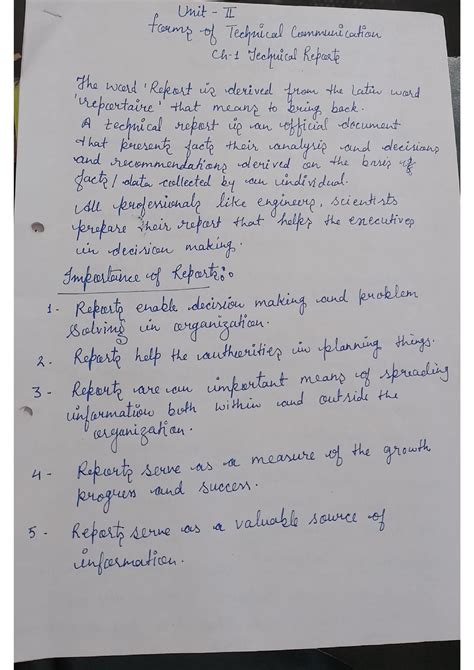 Unit - II
Forms of Technical Communication
Ch-1 Technical Reports
The word 'Report is derived from the Latin word
'reportaire' that means to bring back.
A technical report is an official document
that presents facts their analysis and decisions
and recommendations derived on the basis of
facts / data collected by an individual.
All professionals like engineers, scientists
prepare their report that helps the executives
in decision making.
Importance of Reports:-
1 - Reports enable decision making and problem
solving in organization.
2. Reports help the authorities in planning things.
3 - Reports are an important means of spreading
information both within and outside the
organization.
4 - Reports serve as a measure of the growth
progress and success.
5 - Reports serve as a valuable source of
information.